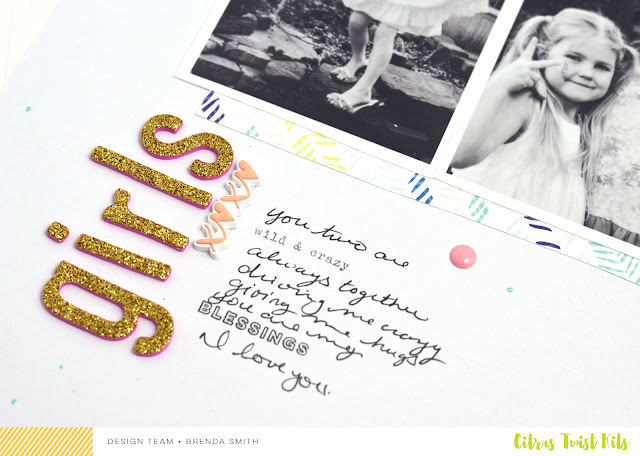 girls
xoxo
you two are
wild & crazy
always together
driving me crazy
giving me hugs
you are my
BLESSINGS
I love you.
DESIGN TEAM • BRENDA SMITH
Citrus Twist Kits